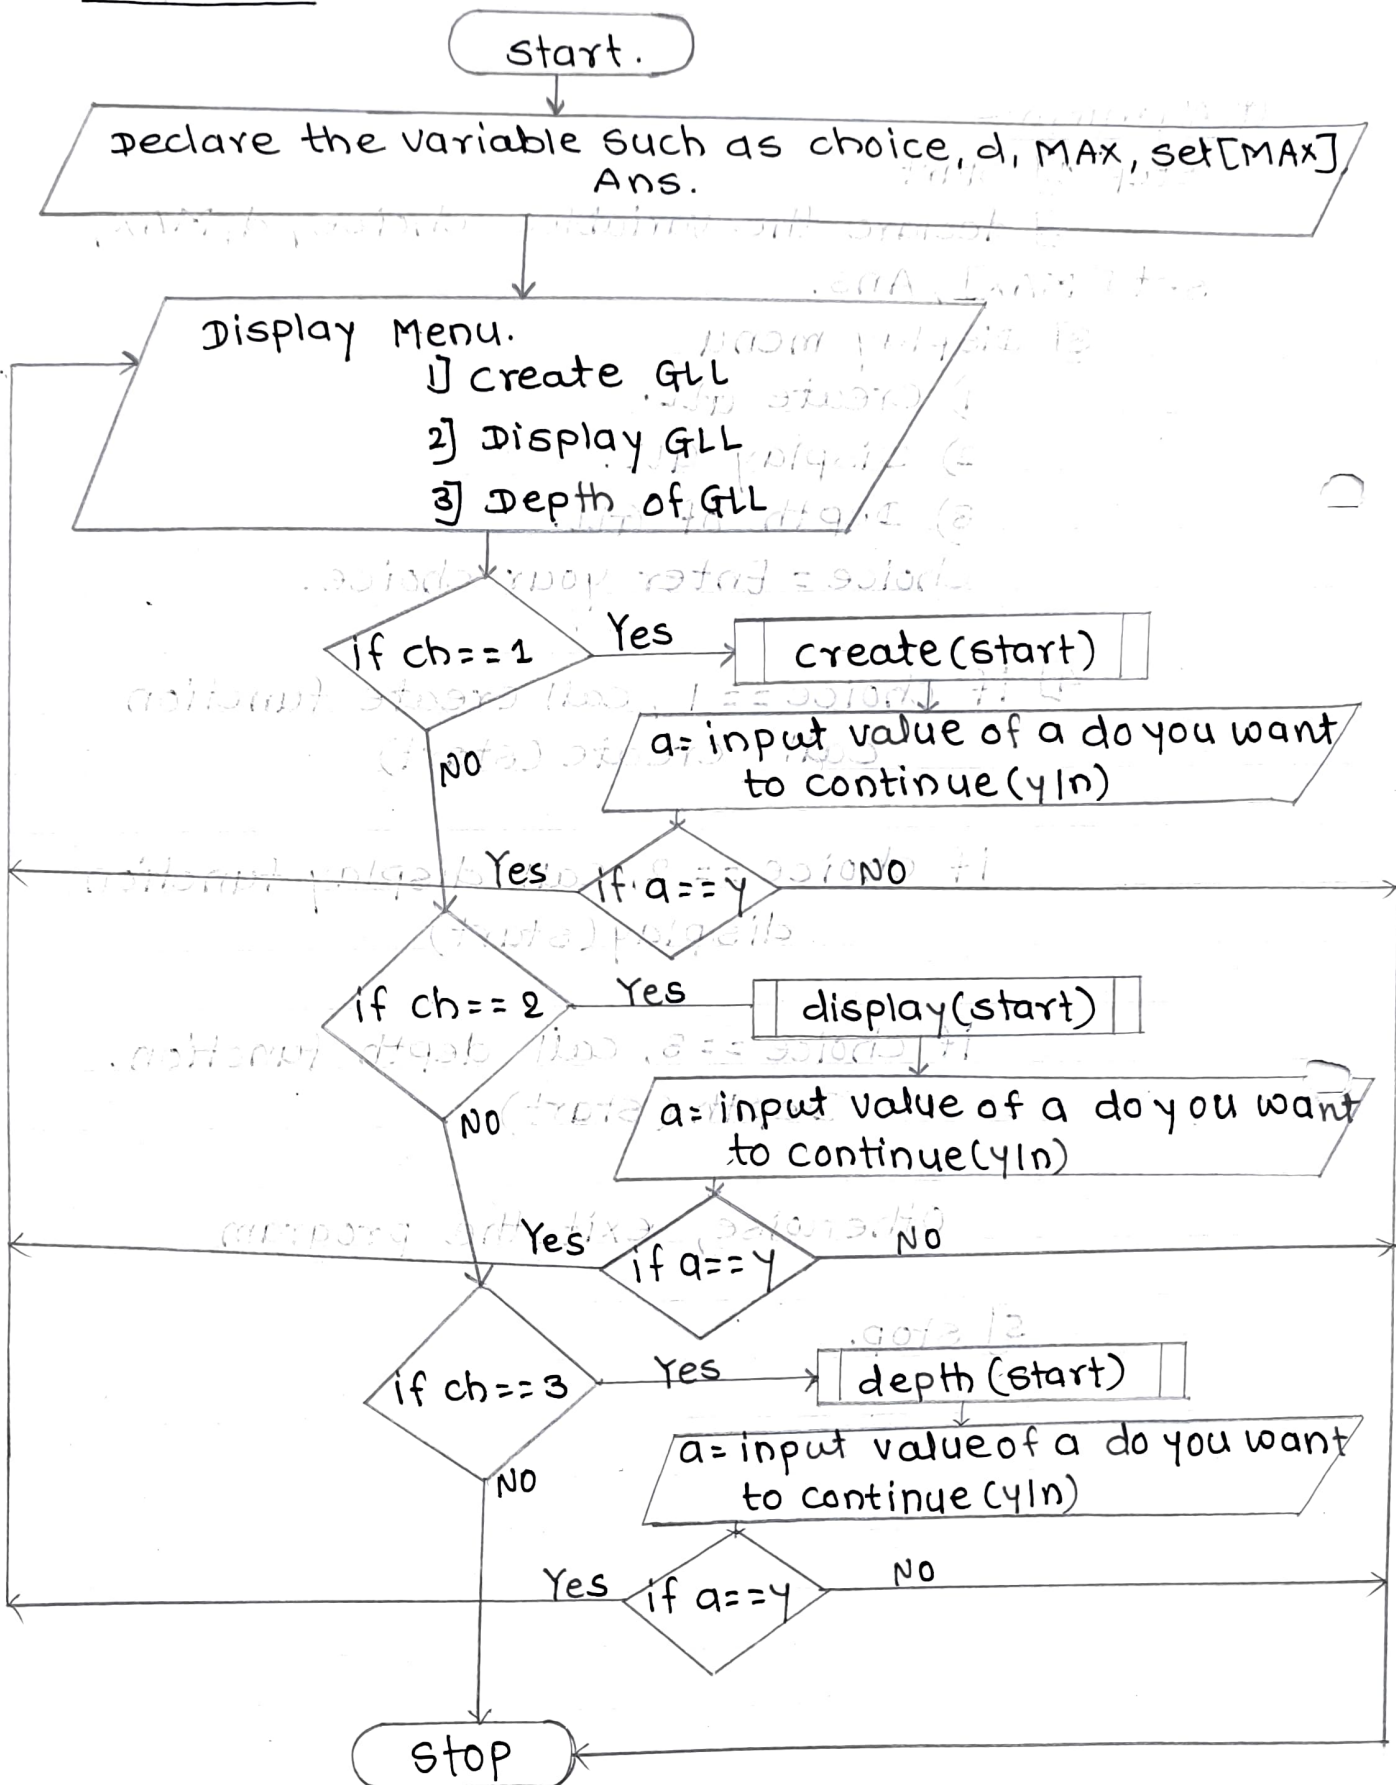 start.
Declare the variable such as choice, d, MAX, set[MAX]
Ans.
Display Menu.
1] create GLL
2] Display GLL
3] Depth of GLL
if ch==1
Yes
create(start)
NO
a= input value of a do you want
to continue(y/n)
Yes
if a==y
NO
if ch==2
Yes
display(start)
NO
a= input value of a do you want
to continue(y/n)
Yes
if a==y
NO
if ch==3
Yes
depth(start)
NO
a= input value of a do you want
to continue(y/n)
Yes
if a==y
NO
stop